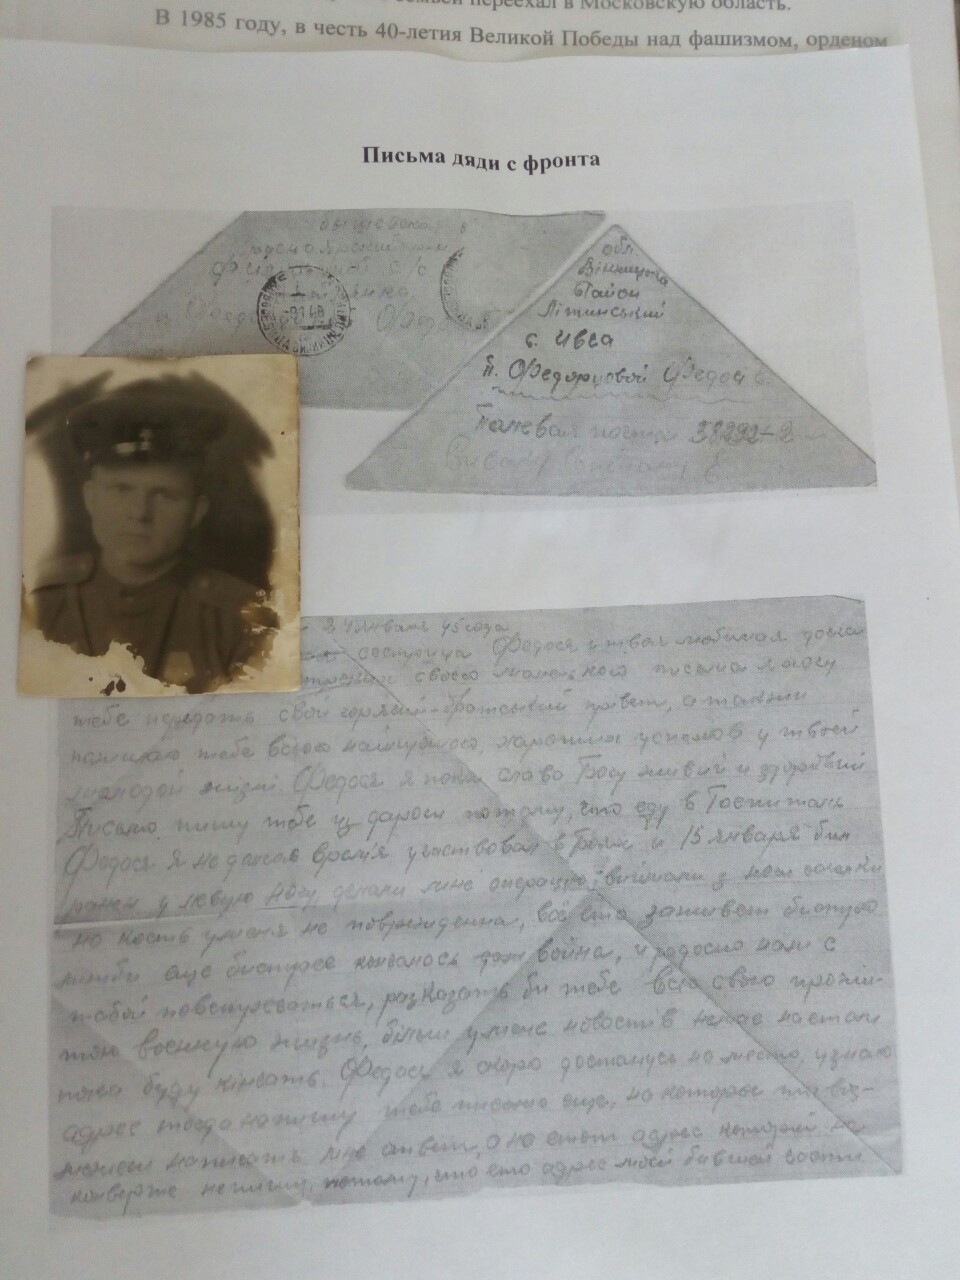 семьей переехал в Московскую область.
В 1985 году, в честь 40-летия Великой Победы над фашизмом, орденом
Письма дяди с фронта
обл.
Вінницька
Район
Літинський
с. Ивса
п. Федоруовой Федосі
Палевая почта 38292-2
24 января 45 года
сестрица Федося и твоя любимая дочка
своего маленького письма я могу
тебе передать свой горячий братський привет, а также
пожелаю тебе всього найлучшого, хароших успехов у твоей
молодой жизні. Федося я пока слава Богу живий и здоровый
Письмо пишу тебе из дароги потому, что еду в Госпиталь
Федося я недавно время участвовал в Боях и 15 января бил
ранен у левую ногу, делали мне операцию, виймали осколки
но кость у меня не поврежденна, всё ето заживет бистро
лишби еще бистрее кончалось война, и радосно нам с
табой повстречаться, разказать би тебе всю свою прожи-
тою военную жизнь, більш у мене новостів немає на етом
пока буду кінчать. Федося я скоро достанусь на место, узнаю
адрес тогда напишу тебе письмо еще, на которое ти віз-
можеш написать мне ответ, а на етот адрес который на
конверте непиши, потому, что ето адрес моей бившей части